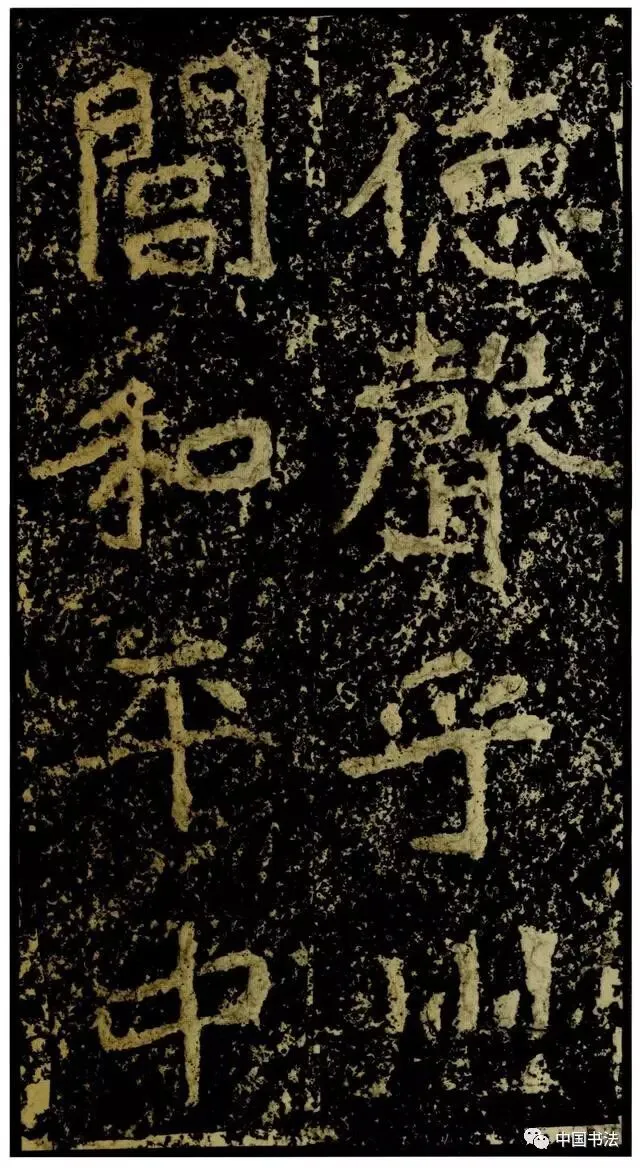 德聲乎州
閭和平中
中国书法